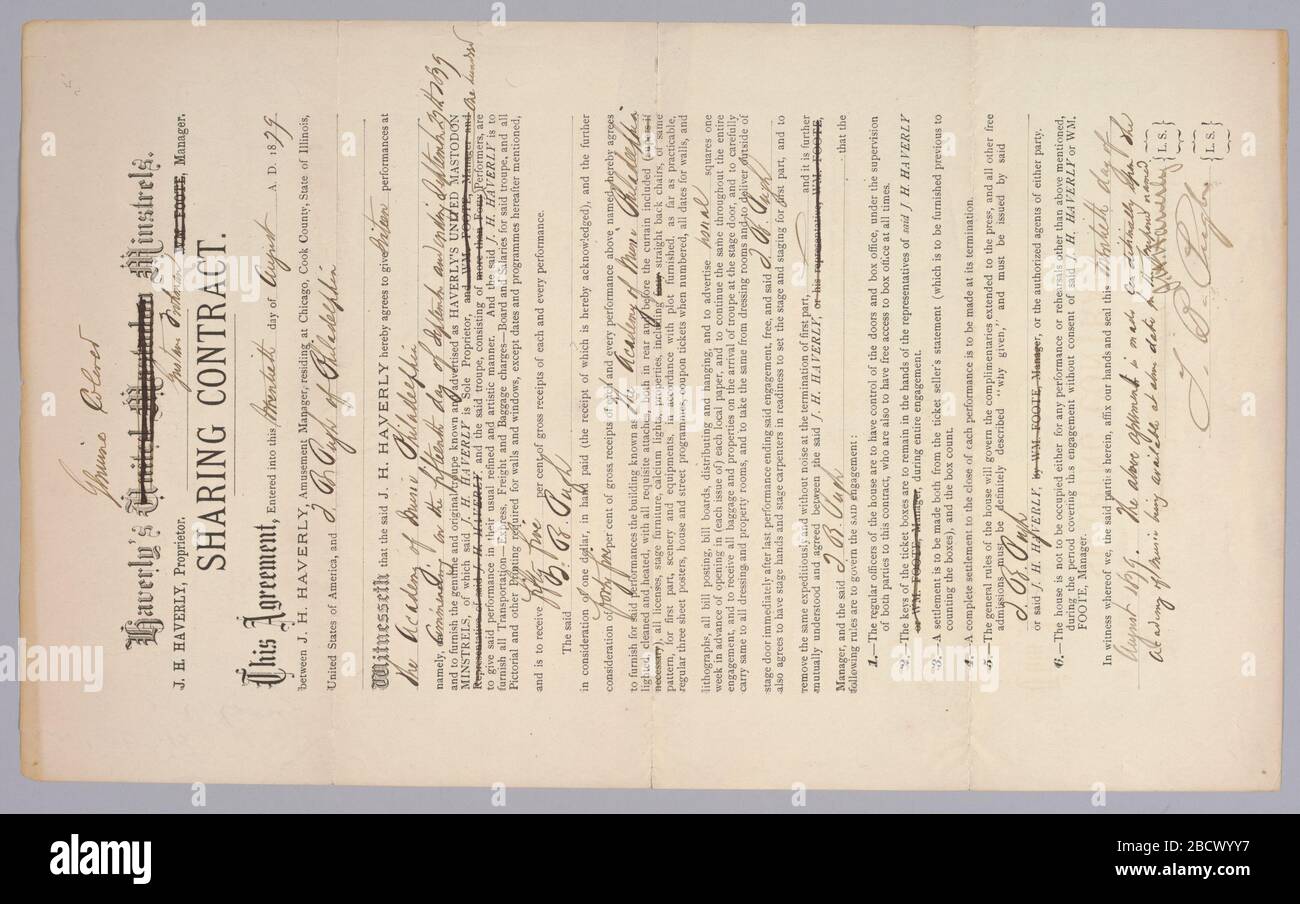 Genuine Colored
Haverly's United Mastodon Minstrels.
J. H. HAVERLY, Proprietor. WM FOOTE, Manager.
SHARING CONTRACT.
This Agreement, Entered into this Twentieth day of August A. D. 1879
between J. H. HAVERLY, Amusement Manager, residing at Chicago, Cook County, State of Illinois,
United States of America, and J B Pugh of Philadelphia
Witnesseth that the said J. H. HAVERLY hereby agrees to give fifteen performances at
The Academy of Music Philadelphia
namely, Commencing on the fifteenth day of September and ending September 27th 1879
and to furnish the genuine and original troupe known and advertised as HAVERLY'S UNITED MASTODON
MINSTRELS, of which said J. H. HAVERLY is Sole Proprietor, and WM. FOOTE, Manager and
Representative of said J. H. HAVERLY, and the said troupe, consisting of more than Forty Performers, are One hundred
to give said performance in their usual refined and artistic manner. And the said J. H. HAVERLY is to
furnish all Transportation—Express, Freight and Baggage charges—Board and Salaries for said troupe, and all
Pictorial and other Printing required for walls and windows, except dates and programmes hereafter mentioned,
and is to receive fifty five per cent of gross receipts of each and every performance.
The said J. B. Pugh
in consideration of one dollar, in hand paid (the receipt of which is hereby acknowledged), and the further
consideration of forty five per cent of gross receipts of each and every performance above named, hereby agrees
to furnish for said performances the building known as the Academy of Music Philadelphia
lighted, cleaned and heated, with all requisite attaches, both in rear and before the curtain included (supers if
necessary), all licenses, stage furniture, calcium lights, properties, including forty straight back chairs, of same
pattern, for first part, scenery and equipments, in accordance with plot furnished, as far as practicable,
regular three sheet posters, house and street programmes, coupon tickets when numbered, all dates for walls, and
lithographs, all bill posting, bill boards, distributing and hanging, and to advertise usual squares one
week in advance of opening in (each issue of) each local paper, and to continue the same throughout the entire
engagement, and to receive all baggage and properties on the arrival of troupe at the stage door, and to carefully
carry same to all dressing and property rooms, and to take the same from dressing rooms and to deliver outside of
stage door immediately after last performance ending said engagement, free, and said J B. Pugh
also agrees to have stage hands and stage carpenters in readiness to set the stage and staging for first part, and to
remove the same expeditiously and without noise at the termination of first part, and it is further
mutually understood and agreed between the said J. H. HAVERLY, or his representative, WM. FOOTE,
Manager, and the said J B. Pugh that the
following rules are to govern the said engagement:
1.—The regular officers of the house are to have control of the doors and box office, under the supervision
of both parties to this contract, who are also to have free access to box office at all times.
2.—The keys of the ticket boxes are to remain in the hands of the representatives of said J H. HAVERLY
or WM. FOOTE, Manager, during entire engagement.
3.—A settlement is to be made both from the ticket seller's statement (which is to be furnished previous to
counting the boxes), and the box count.
4.—A complete settlement to the close of each performance is to be made at its termination.
5.—The general rules of the house will govern the complimentaries extended to the press, and all other free
admissions must be definitely described "why given," and must be issued by said
J B. Pugh
or said J. H. HAVERLY, by WM. FOOTE, Manager, or the authorized agents of either party.
6.—The house is not to be occupied either for any performance or rehearsals other than above mentioned,
during the period covering this engagement without consent of said J. H. HAVERLY or WM.
FOOTE, Manager.
In witness whereof we, the said parties herein, affix our hands and seal this Twentieth day of
August 1879. The above agreement is made conditionally upon the
Academy of Music being available at time dates
J H Haverly {L. S.}
J B Pugh {L. S.}
alamy
Image ID: 2BCWYY7
www.alamy.com